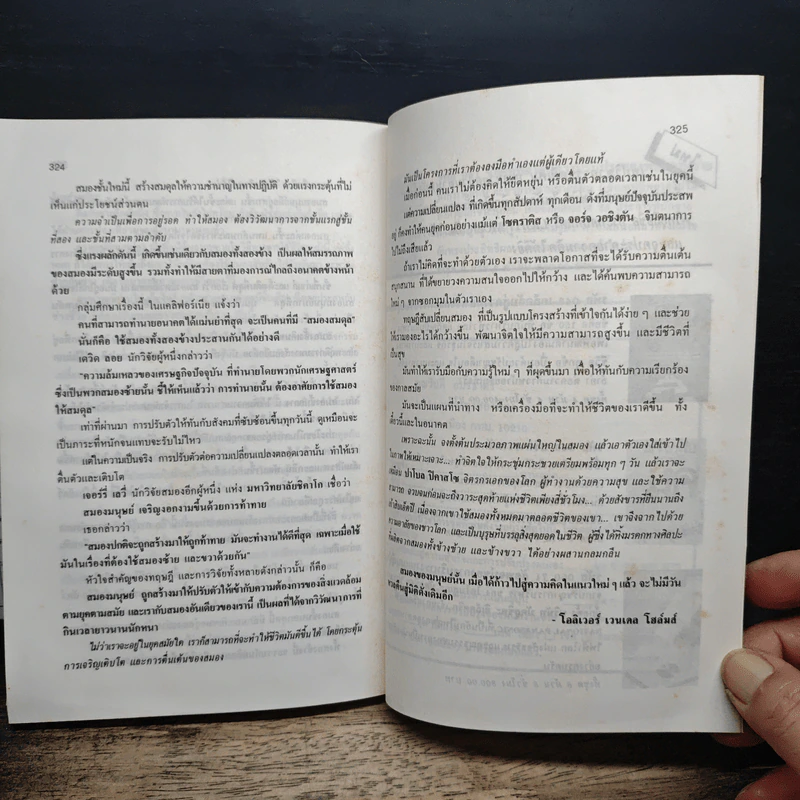 324
สมองชั้นใหม่นี้ สร้างสมดุลให้ความชำนาญในทางปฏิบัติ ด้วยแรงกระตุ้นที่ไม่
เห็นแก่ประโยชน์ส่วนตน
ความจำเป็นเพื่อการอยู่รอด ทำให้สมอง ต้องวิวัฒนาการจากชั้นแรกสู่ชั้น
ที่สอง และชั้นที่สามตามลำดับ
ซึ่งแรงผลักดันนี้ เกิดขึ้นเช่นเดียวกับสมองทั้งสองข้าง เป็นผลให้สมรรถภาพ
ของสมองมีระดับสูงขึ้น รวมทั้งทำให้มีสายตาที่มองการณ์ไกลถึงอนาคตข้างหน้า
ด้วย
กลุ่มศึกษาเรื่องนี้ ในแคลิฟอร์เนีย แจ้งว่า
คนที่สามารถทำนายอนาคตได้แม่นยำที่สุด จะเป็นคนที่มี "สมองสมดุล"
นั่นก็คือ ใช้สมองทั้งสองข้างประสานกันได้อย่างดี
เดวิด ลอย นักวิจัยผู้หนึ่งกล่าวว่า
"ความล้มเหลวของเศรษฐกิจปัจจุบัน ที่ทำนายโดยพวกนักเศรษฐศาสตร์
ซึ่งเป็นพวกสมองซ้ายนั้น ชี้ให้เห็นแล้วว่า การทำนายนั้น ต้องอาศัยการใช้สมอง
ให้สมดุล"
เท่าที่ผ่านมา การปรับตัวให้ทันกับสังคมที่ซับซ้อนขึ้นทุกวันนี้ ดูเหมือนจะ
เป็นภาระที่หนักจนแทบจะรับไม่ไหว
แต่ในความเป็นจริง การปรับตัวต่อความเปลี่ยนแปลงตลอดเวลานั้น ทำให้เรา
ตื่นตัวและเติบโต
เจอร์รี่ เลวี่ นักวิจัยสมองอีกผู้หนึ่ง แห่ง มหาวิทยาลัยชิคาโก เชื่อว่า
สมองมนุษย์ เจริญงอกงามขึ้นด้วยการท้าทาย
เธอกล่าวว่า
"สมองปกติจะถูกสร้างมาให้ถูกท้าทาย มันจะทำงานได้ดีที่สุด เฉพาะเมื่อใช้
มันในเรื่องที่ต้องใช้สมองซ้าย และขวาด้วยกัน"
หัวใจสำคัญของทฤษฎี และการวิจัยทั้งหลายดังกล่าวนั้น ก็คือ
มนุษย์ ถูกสร้างมาให้ปรับตัวให้เข้ากับความต้องการของสิ่งแวดล้อม
ตามยุคตามสมัย และเรากับสมองอันเดียวของเรานี้ เป็นผลที่ได้จากวิวัฒนาการที่
กินเวลายาวนานนักหนา
ไม่ว่าเราจะอยู่ในยุคสมัยใด เราก็สามารถที่จะทำให้ชีวิตมันดีขึ้นได้ โดยกระตุ้น
การเจริญเติบโต และการตื่นเต้นของสมอง
325
มันเป็นโครงการที่เราต้องลงมือทำเองแต่ผู้เดียวโดยแท้
เมื่อก่อนนี้ คนเราไม่ต้องคิดให้ยืดหยุ่น หรือตื่นตัวตลอดเวลาเช่นในยุคนี้
แต่ความเปลี่ยนแปลง ที่เกิดขึ้นทุกสัปดาห์ ทุกเดือน ดังที่มนุษย์ปัจจุบันประสพ
อยู่ ก็ทำให้คนยุคก่อนอย่างแม้แต่ โซคราติส หรือ จอร์จ วอชิงตัน จินตนาการ
ไปไม่ถึงเสียแล้ว
ถ้าเราไม่คิดที่จะทำด้วยตัวเอง เราจะพลาดโอกาสที่จะได้รับความตื่นเต้น
สนุกสนาน ที่ได้ขยายวงความสนใจออกไปให้กว้าง และได้ค้นพบความสามารถ
ใหม่ ๆ จากซอกมุมในตัวเราเอง
ทฤษฎีสับเปลี่ยนสมอง ที่เป็นรูปแบบโครงสร้างที่เข้าใจกันได้ง่าย ๆ และช่วย
ให้เรามองอะไรได้กว้างขึ้น พัฒนาจิตใจให้มีความสามารถสูงขึ้น และมีชีวิตที่
เป็นสุข
มันทำให้เรารับมือกับความรู้ใหม่ ๆ ที่ผุดขึ้นมา เพื่อให้ทันกับความเรียกร้อง
ของกาลสมัย
มันจะเป็นแผนที่นำทาง หรือเครื่องมือที่จะทำให้ชีวิตของเราดีขึ้น ทั้ง
เดี๋ยวนี้และในอนาคต
เพราะฉะนั้น จงทั้งค้นประมวลภาพแผ่นใหญ่ในสมอง แล้วเอาตัวเองใส่เข้าไป
ในภาพให้เหมาะเจาะ... ทำจิตใจให้กระชุ่มกระชวยเตรียมพร้อมทุก ๆ วัน แล้วเราจะ
เหมือน ปาโบล ปิคาสโซ จิตรกรเอกของโลก ผู้ทำงานด้วยความสุข และใช้ความ
สามารถ จวบจนก่อนจะถึงวาระสุดท้ายแห่งชีวิตเพียงสี่ชั่วโมง... ด้วยสังขารที่ยืนนานถึง
เก้าสิบเอ็ดปี เนื่องจากเขาใช้สมองทั้งหมดมาตลอดชีวิตของเขา... เขาจึงจากไปด้วย
ความอาลัยของชาวโลก และเป็นบุรุษที่บรรลุสิ่งสุดยอดในชีวิต ผู้ซึ่งได้ทิ้งมรดกทางศิลปะ
ที่ผลิตจากสมองทั้งข้างซ้าย และข้างขวา ได้อย่างผสานกลมกลืน
สมองของมนุษย์นั้น เมื่อได้ก้าวไปสู่ความคิดในแนวใหม่ ๆ แล้ว จะไม่มีวัน
หวนคืนสู่มิติดั้งเดิมอีก
- โอลิเวอร์ เวนเดล โฮล์มส์